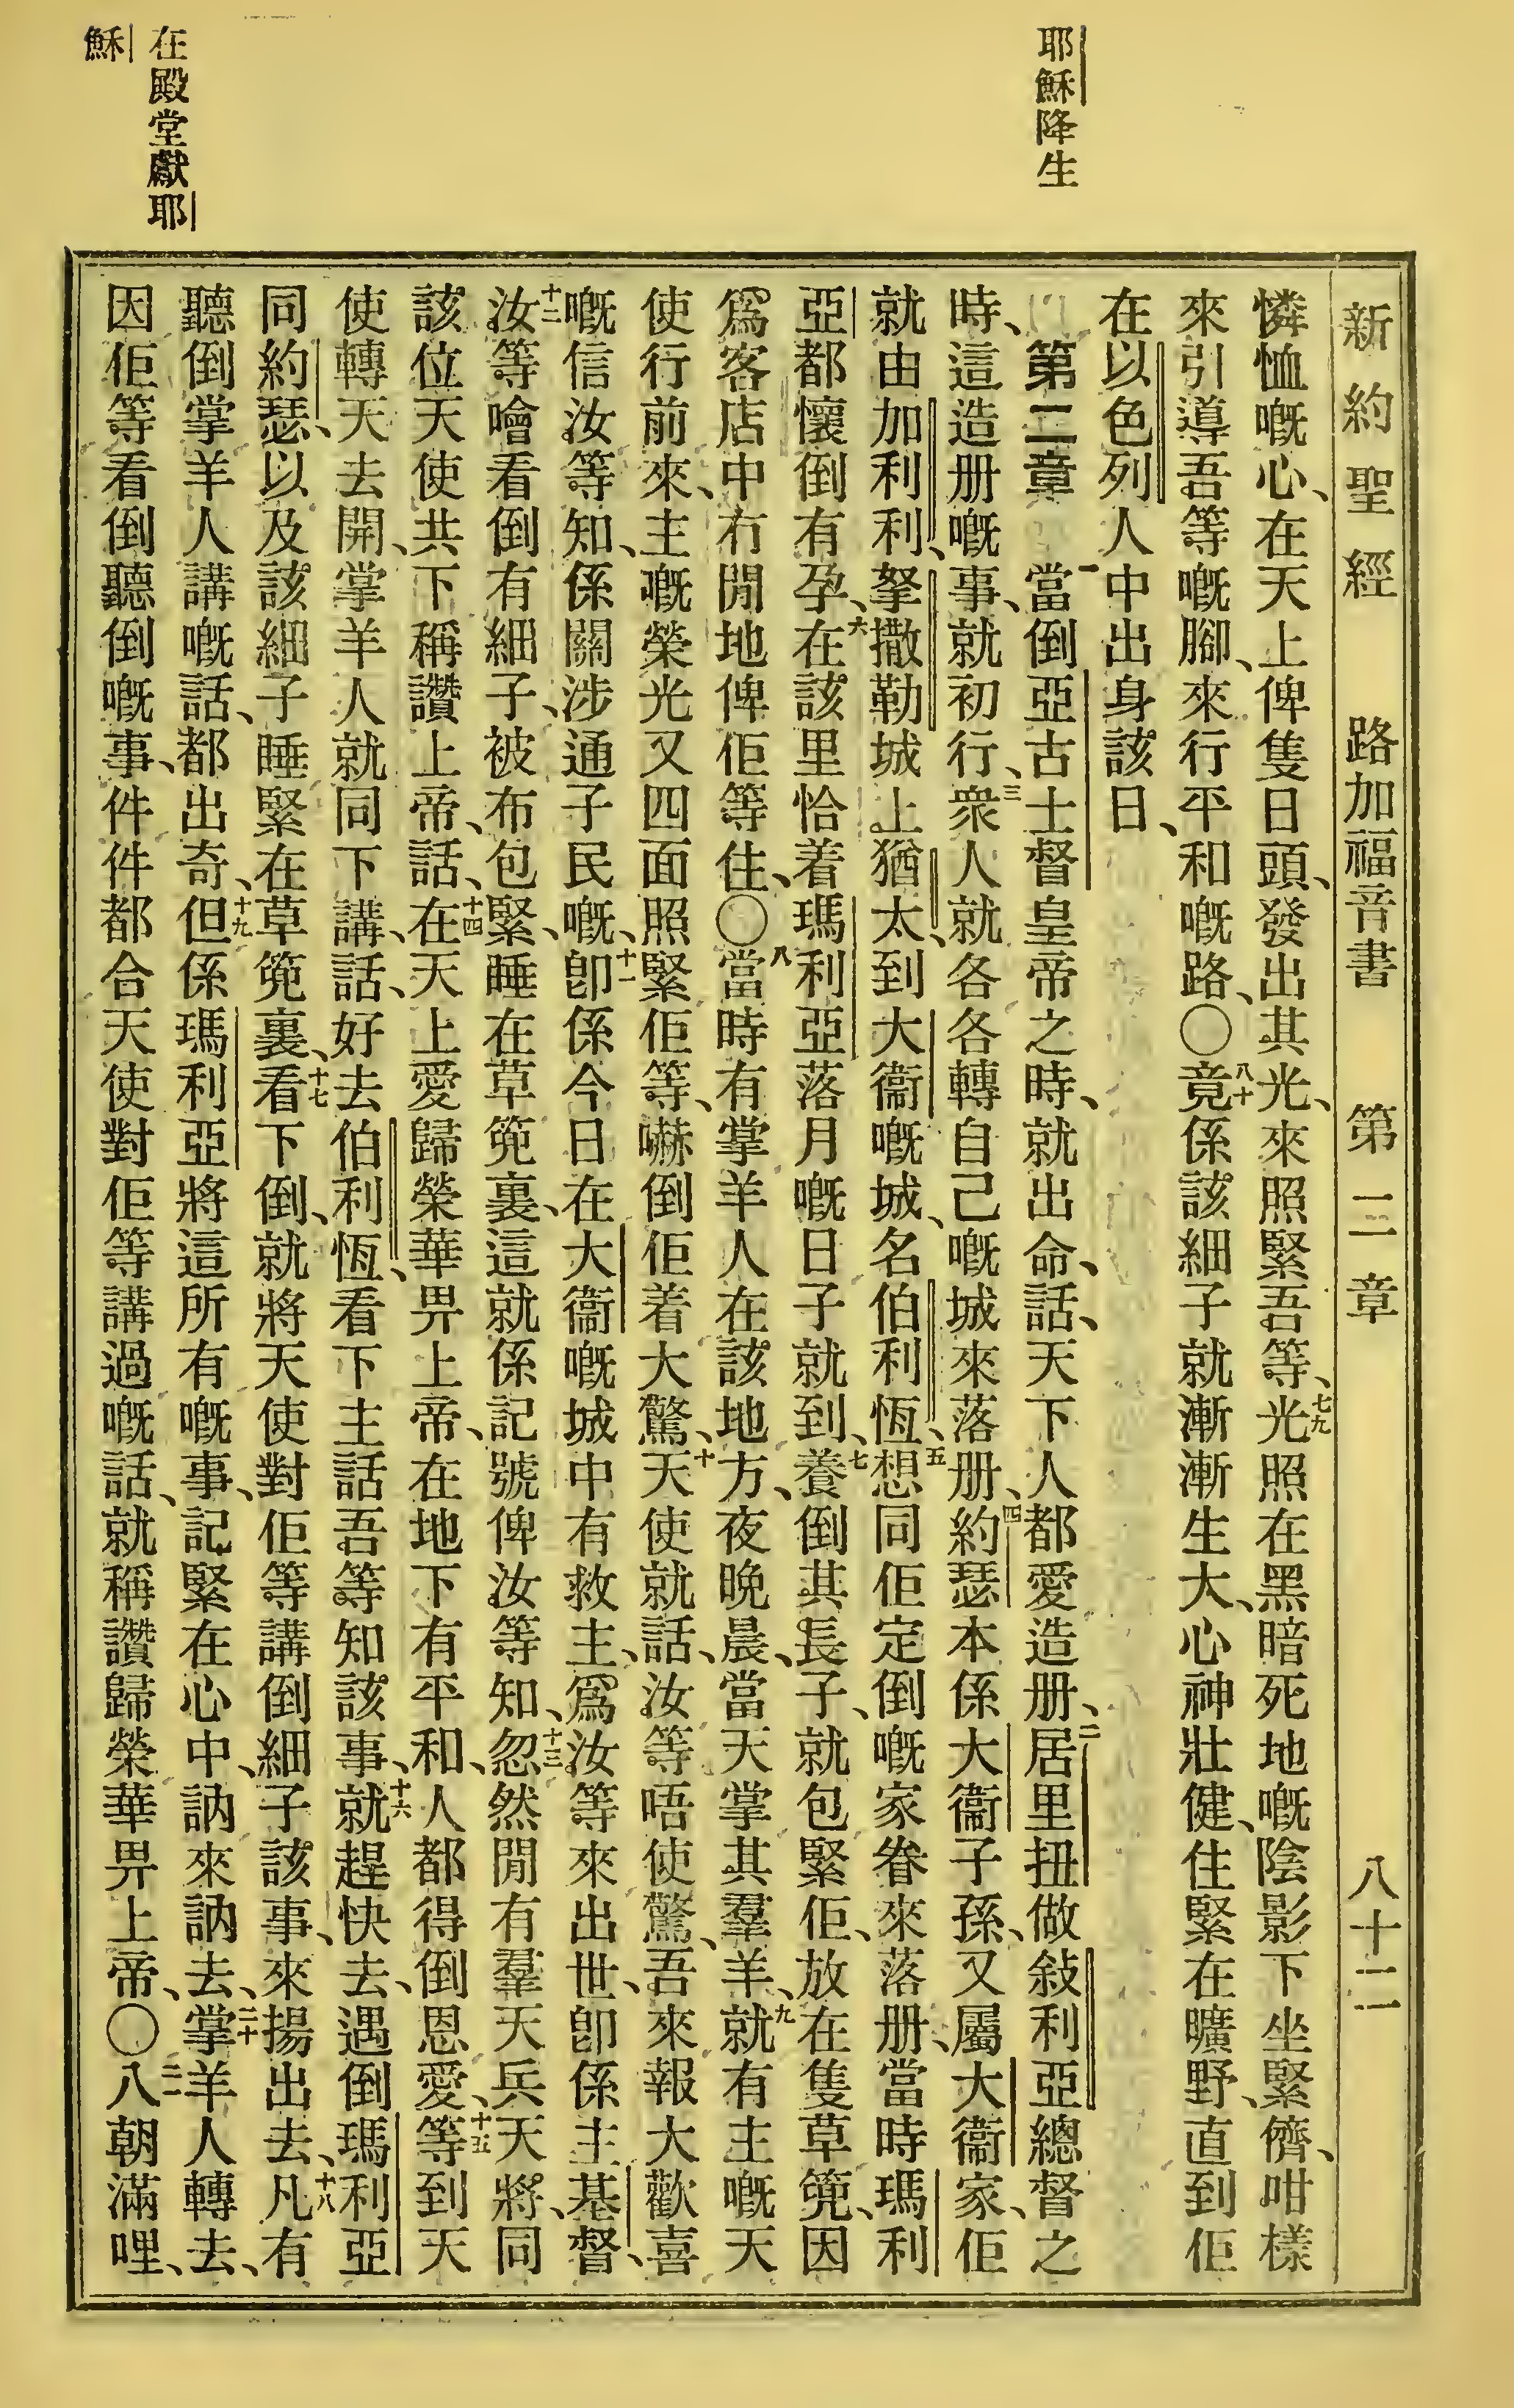 耶穌降生
在殿堂獻耶
穌
新約聖經 路加福音書 第二章 八十二
憐恤嘅心、在天上俾隻日頭、發出其光、來照緊吾等、七九光照在黑暗死地嘅陰影下坐緊儕、咁樣
來引導吾等嘅腳、來行平和嘅路、〇八十竟係該細子就漸漸生大、心神壯健、住緊在曠野、直到佢
在以色列人中出身該日、
第二章 一當倒亞古士督皇帝之時、就出命、話、天下人都愛造册、二居里扭做敍利亞總督之
時、這造册嘅事、就初行、三衆人就各各轉自己嘅城來落册、四約瑟本係大衞子孫、又屬大衞家、佢
就由加利利、拏撒勒城上猶太、到大衞嘅城、名伯利恆、五想同佢定倒嘅家眷來落册、當時瑪利
亞都懷倒有孕、六在該里恰着瑪利亞落月嘅日子就到、七養倒其長子、就包緊佢、放在隻草篼、因
爲客店中冇閒地俾佢等住、〇八當時有掌羊人在該地方、夜晚晨、當天掌其羣羊、九就有主嘅天
使行前來、主嘅榮光又四面照緊佢等、嚇倒佢着大驚、十天使就話、汝等唔使驚、吾來報大歡喜
嘅信汝等知、係關涉通子民嘅、十一卽係今日在大衞嘅城中有救主、爲汝等來出世、卽係主基督、
十二汝等噲看倒有細子、被布包緊、睡在草篼裏、這就係記號俾汝等知、十三忽然間有羣天兵天將、同
該位天使共下稱讚上帝、話、十四在天上愛歸榮華畀上帝、在地下有平和、人都得倒恩愛、十五等到天
使轉天去開、掌羊人就同下講、話、好去伯利恆、看下主話吾等知該事、十六就趕快去、遇倒瑪利亞
同約瑟、以及該細子睡緊在草篼裏、十七看下倒、就將天使對佢等講倒細子該事、來揚出去、十八凡有
聽倒掌羊人講嘅話、都出奇、十九但係瑪利亞將這所有嘅事、記緊在心中、訥來訥去、二十掌羊人轉去、
因佢等看倒聽倒嘅事、件件都合天使對佢等講過嘅話、就稱讚歸榮華畀上帝、〇二一八朝滿哩、